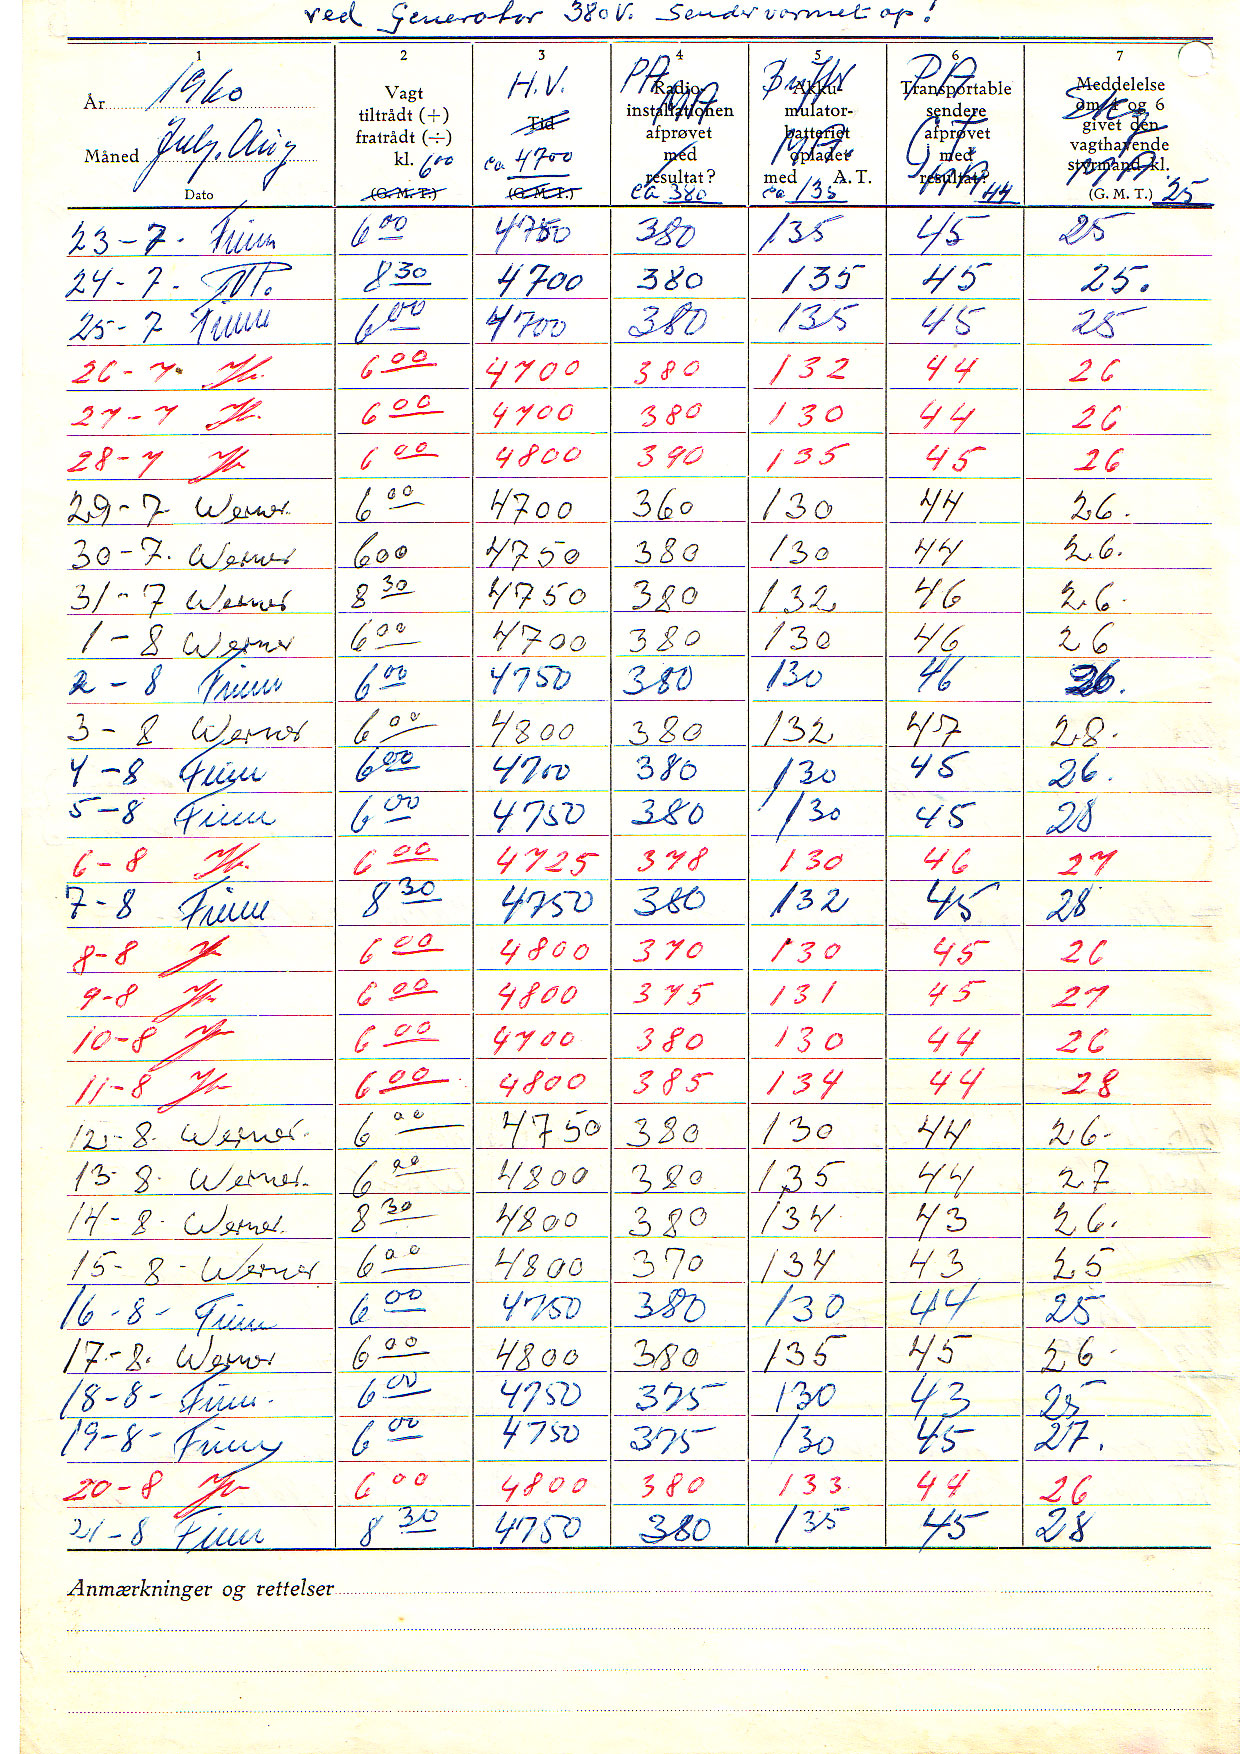 ved Generator 380V. Sender varmet op!
1 2 3 4 5 6 7
År 1960
Måned July. Aug
Dato
Vagt
tiltrådt (+)
fratrådt (÷)
kl. 6 00
(G. M. T.)
H.V.
Tid
ca 4700
(G. M. T.)
PA
Radio-
installationen
afprøvet
med
resultat?
ca 380
Akku-
mulator-
batteriet
opladet
med A. T.
ca 135
PA
Transportable
sendere
afprøvet
med
resultat?
44
Meddelelse
om 4 og 6
givet den
vagthavende
styrmand kl.
(G. M. T.) 25
23-7. Finn 6 00 4750 380 135 45 25
24-7. 8 30 4700 380 135 45 25.
25-7 Finn 6 00 4700 380 135 45 25
26-7. 6 00 4700 380 132 44 26
27-7 6 00 4700 380 130 44 26
28-7 6 00 4800 390 135 45 26
29-7 Werner. 6 00 4700 360 130 44 26.
30-7. Werner 600 4750 380 130 44 26.
31-7 Werner 8 30 4750 380 132 46 26.
1-8 Werner 6 00 4700 380 130 46 26
2-8 Finn 6 00 4750 380 130 46 26.
3-8 Werner 6 00 4800 380 132 47 28.
4-8 Finn 6 00 4700 380 130 45 26.
5-8 Finn 6 00 4750 380 130 45 28
6-8 6 00 4725 378 130 46 27
7-8 Finn 8 30 4750 380 132 45 28
8-8 6 00 4800 370 130 45 26
9-8 6 00 4800 375 131 45 27
10-8 6 00 4700 380 130 44 26
11-8 6 00 4800 385 134 44 28
12-8. Werner. 6 00 4750 380 130 44 26.
13-8. Werner. 6 00 4800 380 135 44 27
14-8. Werner. 8 30 4800 380 134 43 26.
15-8- Werner 6 00 4800 370 134 43 25
16-8- Finn 6 00 4750 380 130 44 25
17-8. Werner 6 00 4800 380 135 45 26.
18-8- Finn. 6 00 4750 375 130 43 25
19-8- Finn 6 00 4750 375 130 45 27.
20-8 6 00 4800 380 133 44 26
21-8 Finn 8 30 4750 380 135 45 28
Anmærkninger og rettelser